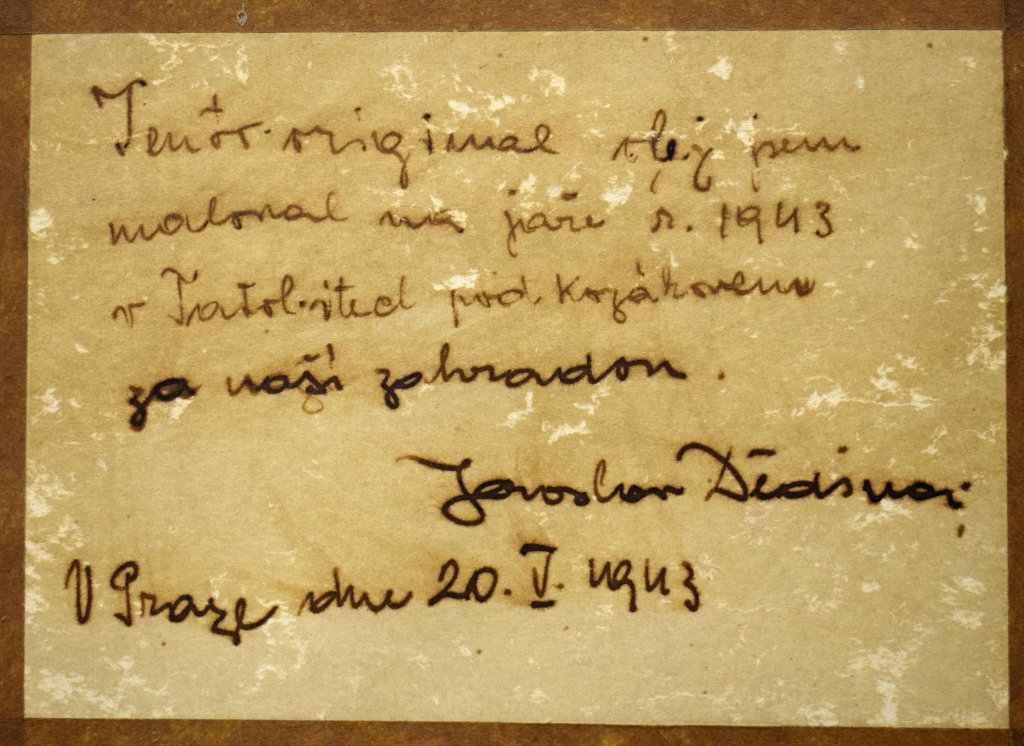 Tento original olej jsem
maloval na jaře r. 1943
v Tatobitech pod Kozákovem
za naší zahradou.
Jaroslav Dědina
V Praze dne 20. V. 1943